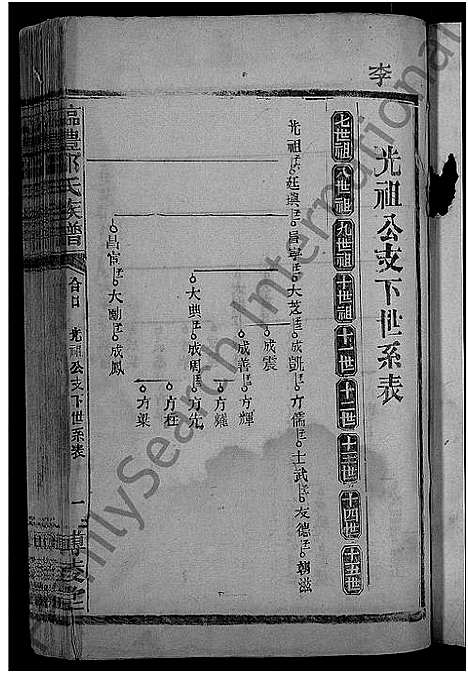 李
光祖公支下世系表
七世祖 八世祖 九世祖 十世祖 十一世 十二世 十三世 十四世 十五世
光祖 廷興 昌寧 大芝 成凱 方儒 士武 友德 朝滋
成震
成善 方輝
方耀
大典 成周 方先
方柱
方梁
昌富 大勳 成鳳
氏族譜
光祖公支下世系表
一
博陵堂
FamilySearch International